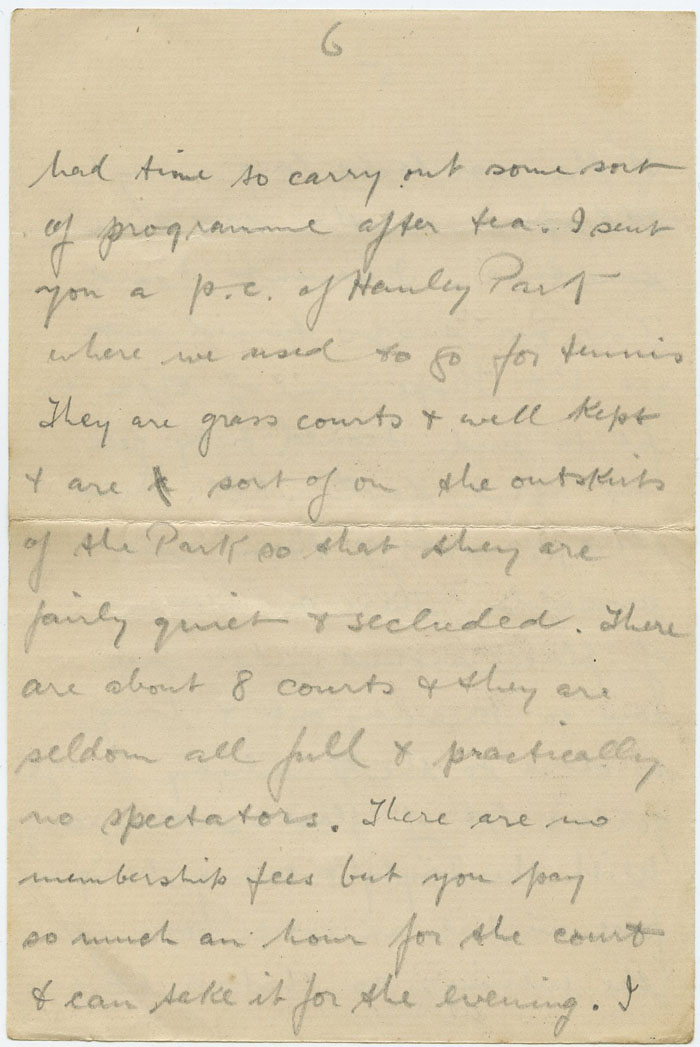 6
had time to carry out some sort
of programme after tea. I sent
you a p.c. of Hanley Park
where we used to go for tennis
They are grass courts & well kept
& are sort of on the outskirts
of the Park so that they are
fairly quiet & secluded. There
are about 8 courts & they are
seldom all full & practically
no spectators. There are no
membership fees but you pay
so much an hour for the court
& can take it for the evening. I